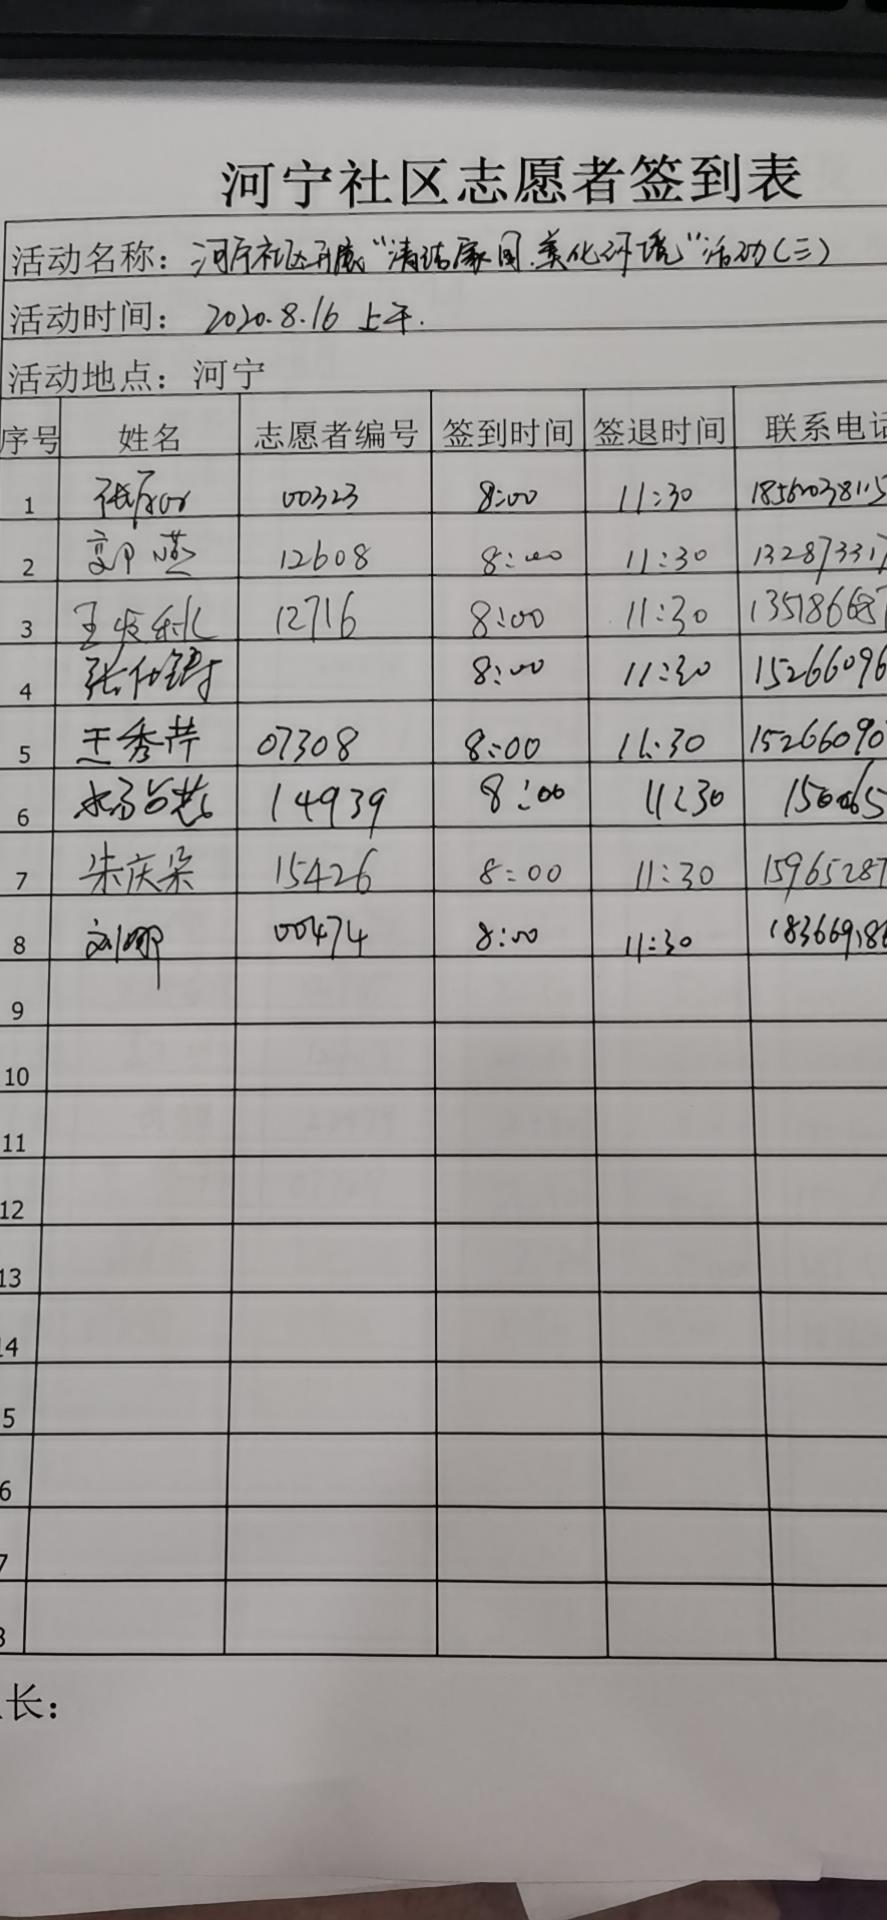 河宁社区志愿者签到表
活动名称：河宁社区开展“清洁家园.美化环境”活动(三)
活动时间： 2020.8.16 上午.
活动地点：河宁
序号 姓名 志愿者编号 签到时间 签退时间 联系电话
1 00323 8:00 11:30
2 郭燕 12608 8:00 11:30 132873317
3 王 12716 8:00 11:30 135186687
4 张 8:00 11:30 15266096
5 王秀芹 07308 8:00 11:30 15266090
6 14939 8:00 11:30
7 朱庆朵 15426 8:00 11:30 15965287
8 刘娜 00474 8:00 11:30 183669186
9
10
11
12
13
14
5
6
7
8
长：